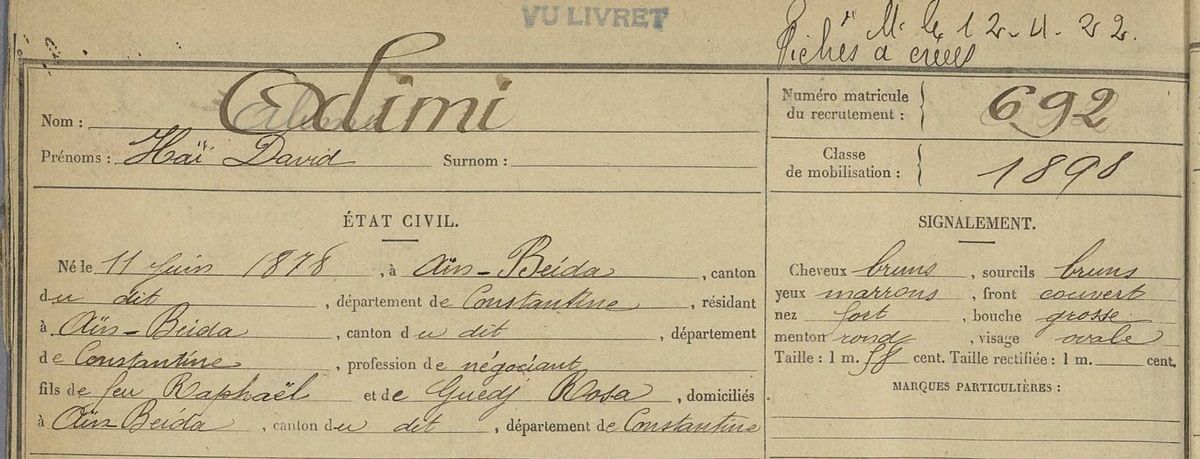 VU LIVRET
M. le 12-4-22.
Fiches à créer
Nom : Adimi
Prénoms : Haï David Surnom :
Numéro matricule du recrutement : 692
Classe de mobilisation : 1898
ÉTAT CIVIL.
Né le 11 Juin 1878, à Aïn-Beïda, canton
du dit, département de Constantine, résidant
à Aïn-Beïda, canton du dit, département
de Constantine, profession de négociant
fils de feu Raphaël et de Guedj Rosa, domiciliés
à Aïn Beïda, canton du dit, département de Constantine
SIGNALEMENT.
Cheveux bruns, sourcils bruns
yeux marrons, front couvert
nez fort, bouche grosse
menton rond, visage ovale
Taille : 1 m. 58 cent. Taille rectifiée : 1 m. cent.
MARQUES PARTICULIÈRES :